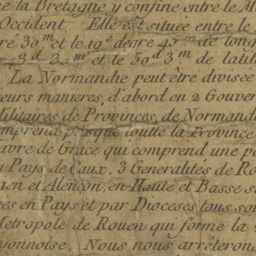 e la Bretagne y confine entre le M
Occident. Elle est située entre le
ré 30.m et le 19.e degre 45.m de long
3.d 3.m et le 50.d 3.m de latit
La Normandie peut être divisée
eurs manieres, d'abord en 2 Gouver
ilitaires de Provinces, de Normand
omprend presque toutte la Province
avre de Grace qui comprend une pa
u Pays de Caux. 3 Generalités de Ro
en et Alençon, en Haute et Basse s
ées en Pays et par Dioceses tous so
Métropole de Rouen qui forme la
ajonnoise. Nous nous arréterons